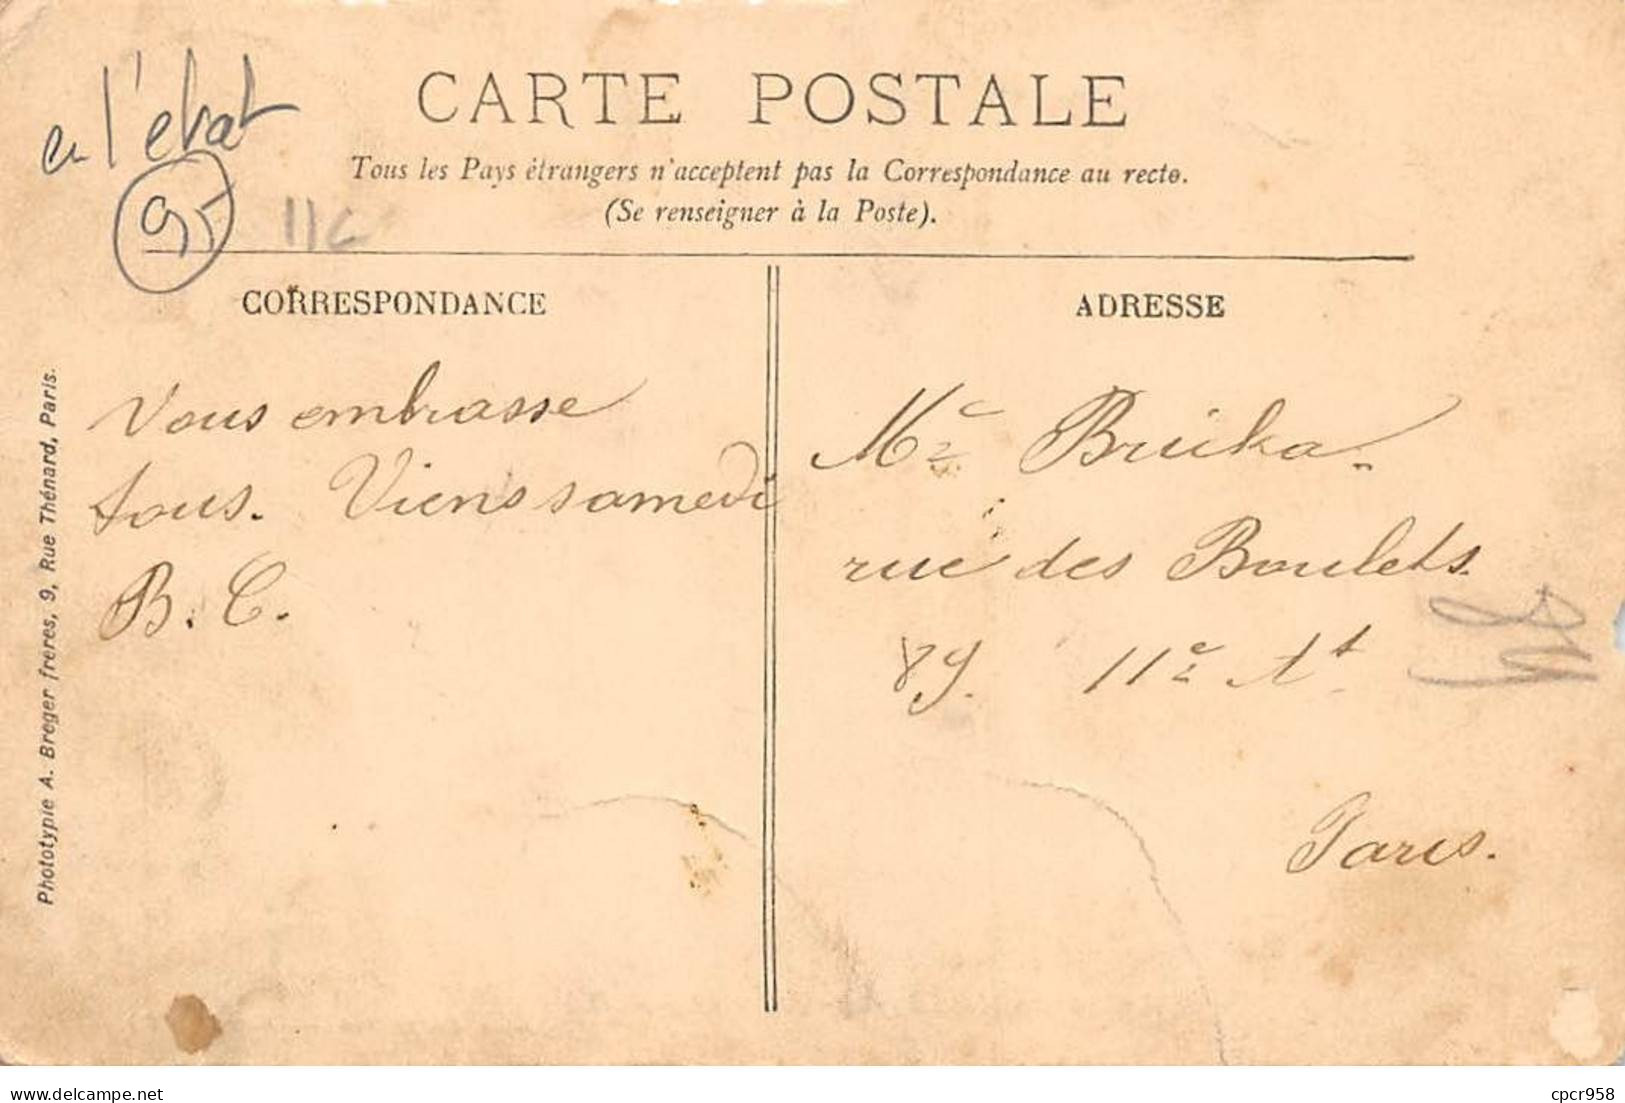 en l'etat
95
11c
CARTE POSTALE
Tous les Pays étrangers n'acceptent pas la Correspondance au recto.
(Se renseigner à la Poste).
CORRESPONDANCE
Vous embrasse
tous. Viens samedi
B. C.
ADRESSE
Me Bricka.
rue des Boulets.
89. 11e At
Paris.
Phototypie A. Breger freres, 9, Rue Thénard, Paris.
delcampe.net
cpcr958